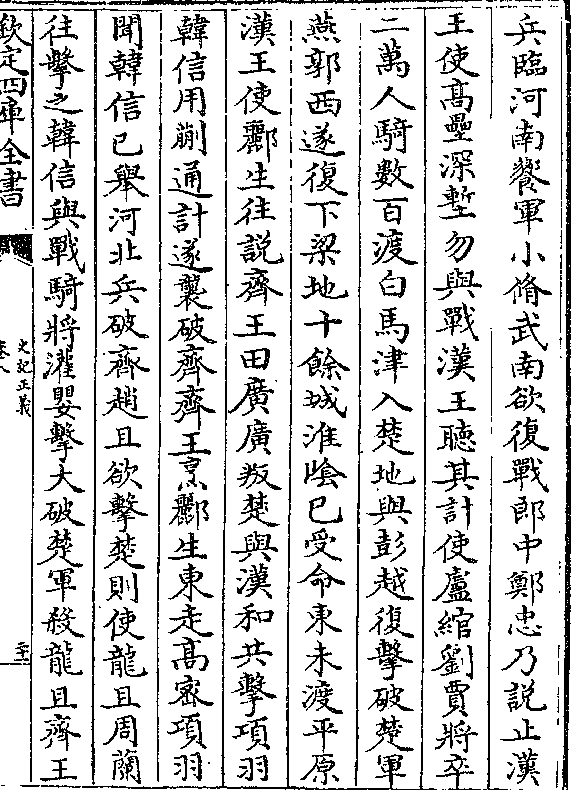 兵臨河南饗軍小脩武南欲復戰郎中鄭忠乃説止漢
王使髙壘深塹勿與戰漢王聽其計使盧綰劉賈將卒
二萬人騎數百渡白馬津入楚地與彭越復擊破楚軍
燕郭西遂復下梁地十餘城淮隂已受命東未渡平原
漢王使酈生往説齊王田廣廣叛楚與漢和共擊項羽
韓信用蒯通計遂襲破齊齊王烹酈生東走髙宻項羽
聞韓信已舉河北兵破齊趙且欲擊楚則使龍且周蘭
往擊之韓信與戰騎將灌嬰擊大破楚軍殺龍且齊王
欽定四庫全書
史記正義
卷八